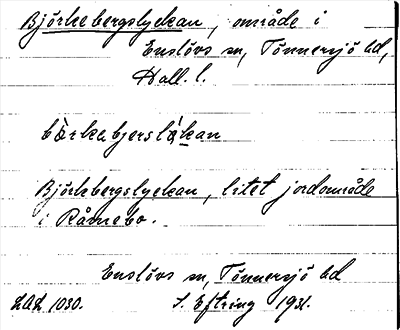 Björkebergslyckan, område i
Enslövs sn, Tönnersjö hd,
Hall. l.
bö̀rkabjersly̆kan
Björkbergslyckan, litet jordområde
i Rånnebo.
Enslövs sn, Tönnersjö hd
LAL 1030. S. Eftring 1931.